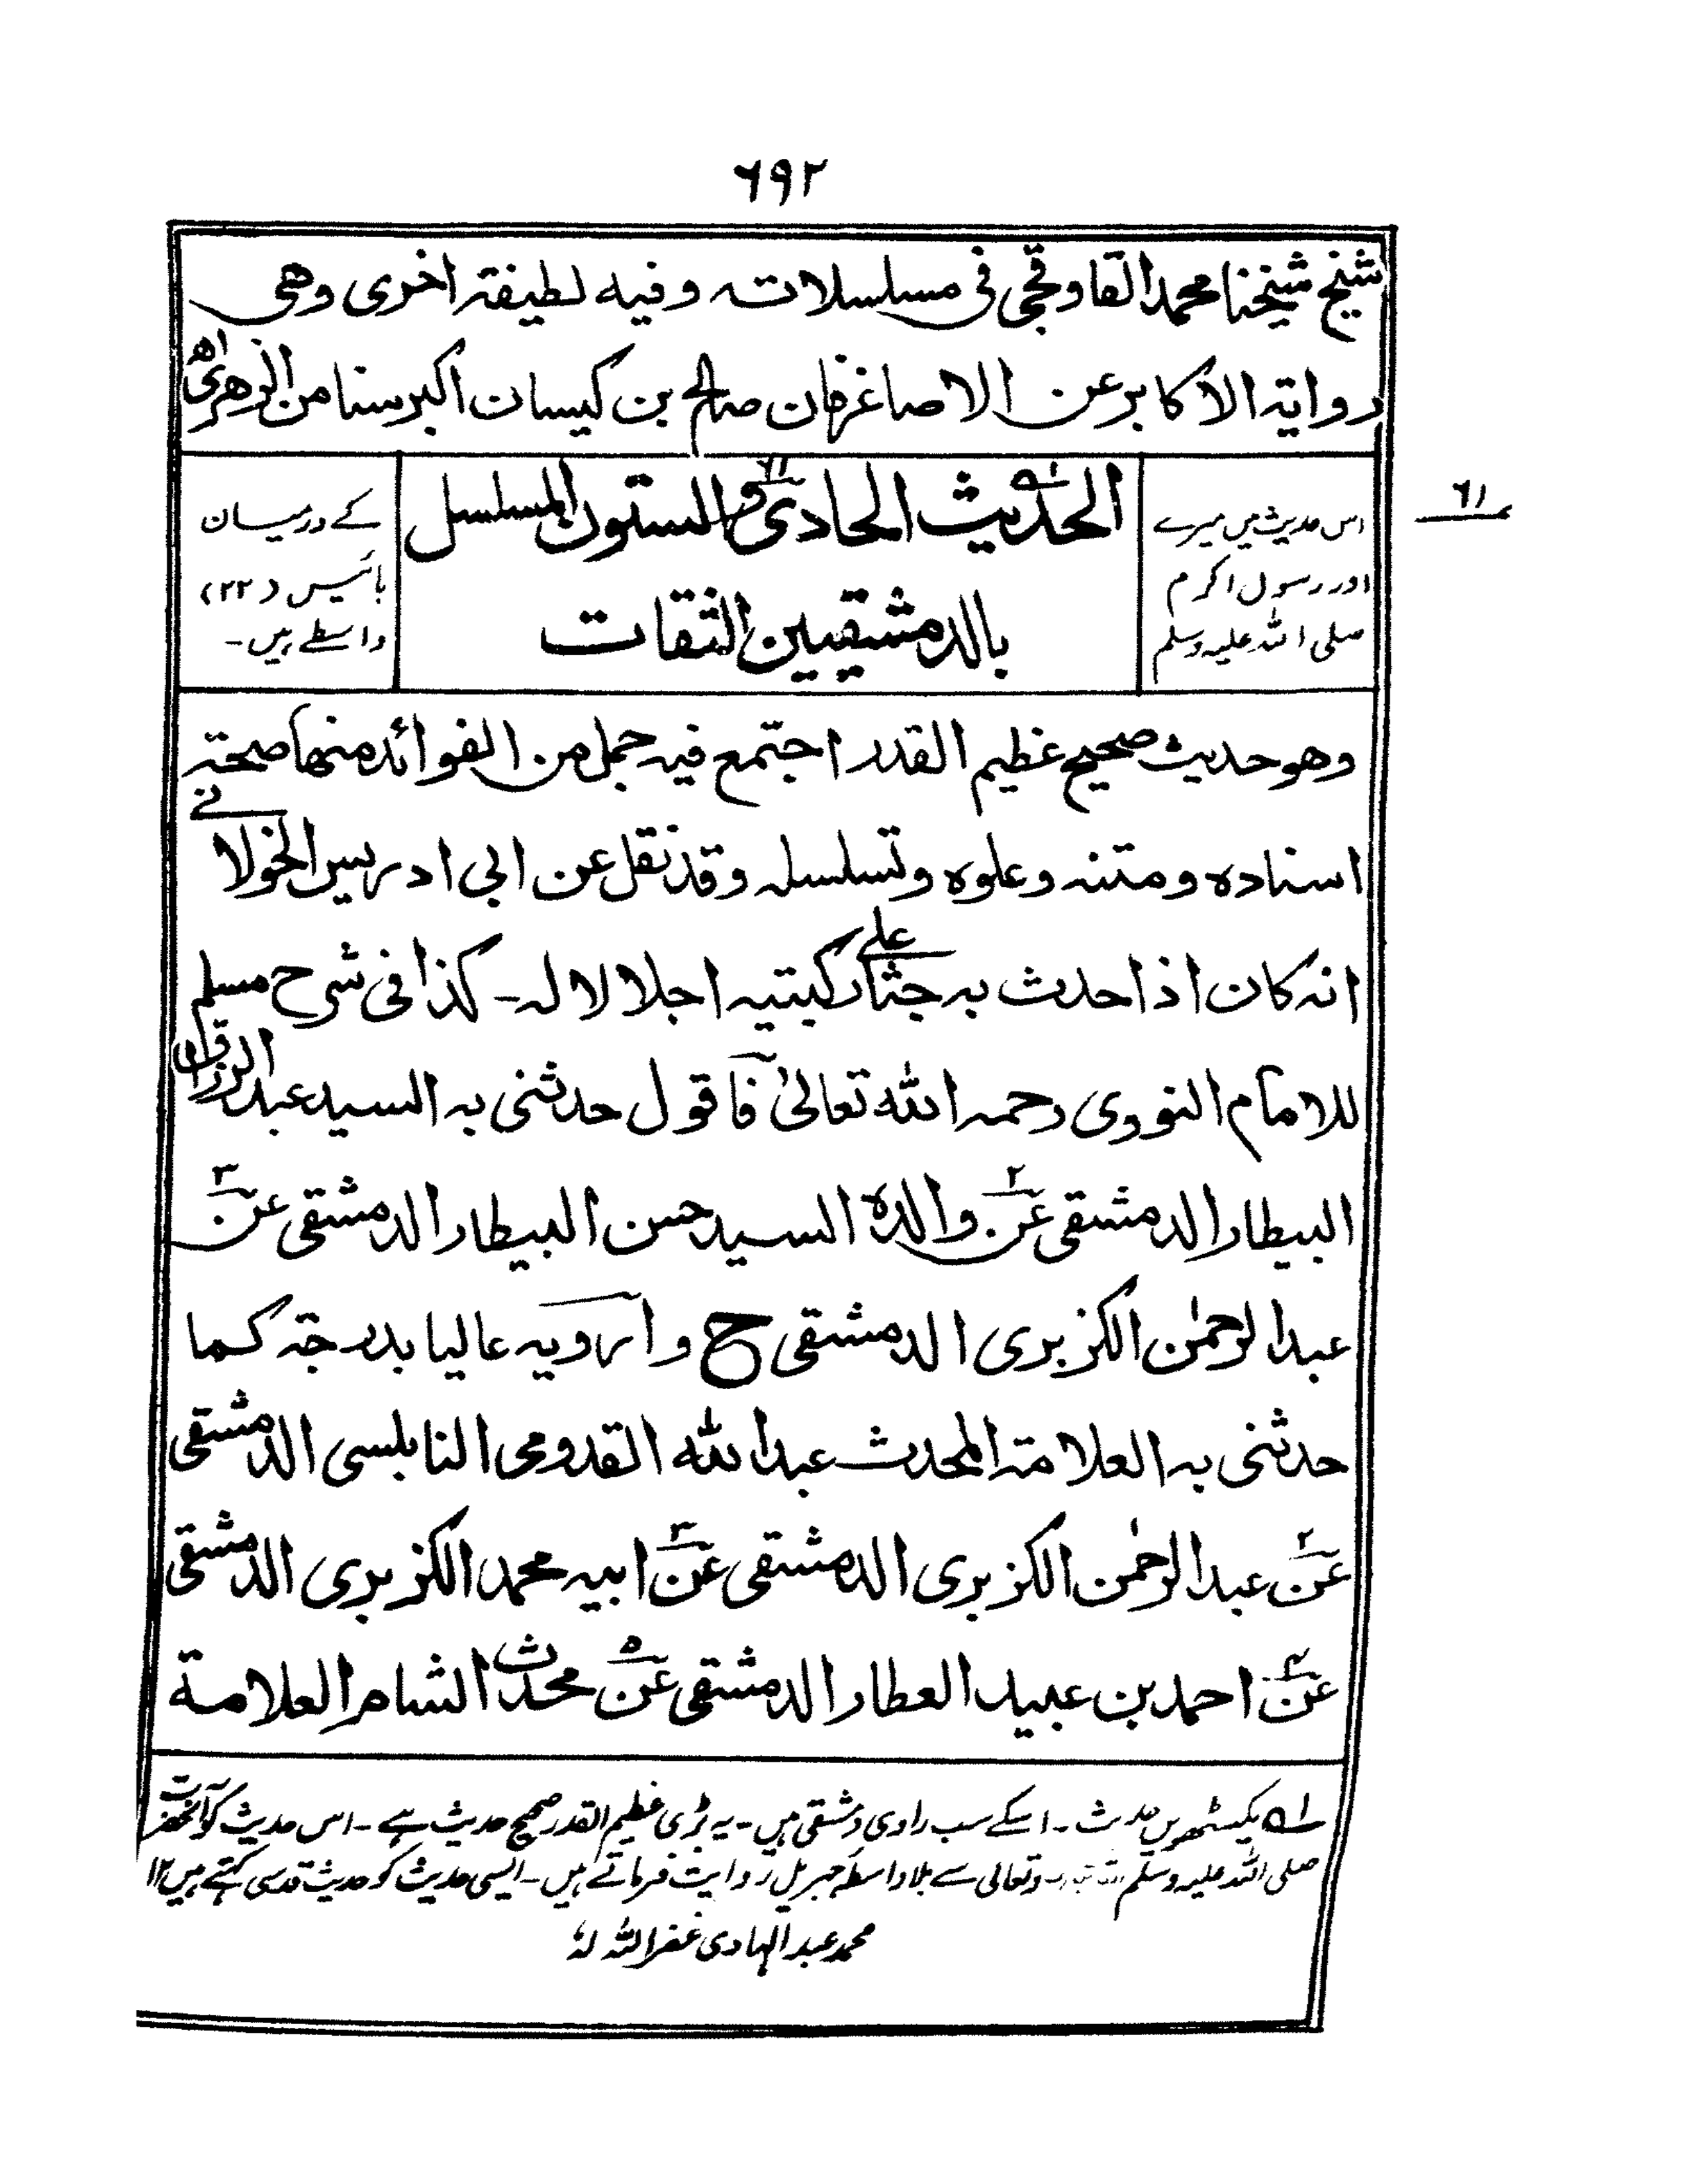 ٦٩٢
شيخ شيخنا محمد القاوقجى فى مسلسلاته وفيه لطيفة اخرى وهى
رواية الاكابر عن الاصاغر فان صالح بن كيسان اكبر سنا من الزهرى اھ
٦١
اس حدیث میں میرے
اور رسول اکرم
صلی اللہ علیہ وسلم
الحديث الحادى والستون المسلسل
بالدمشقيين الثقات
کے درمیان
بائیس (۲۲)
واسطے ہیں۔
وهو حديث صحيح عظيم القدر اجتمع فيه جمل من الفوائد منها صحة
اسناده ومتنه وعلوه وتسلسله وقد نقل عن ابى ادريس الخولانے
انه كان اذا حدث به جثا على ركبتيه اجلالا له۔ كذا فى شرح مسلم
للامام النووى رحمه الله تعالىٰ فاقول حدثنى به السيد عبد الرزاق
البيطار الدمشقى عن٢ والده السيد حسن البيطار الدمشقى عن٣
عبد الرحمٰن الكزبرى الدمشقى ح وارويه عاليا بدرجة كما
حدثنى به العلامة المحدث عبد الله القدومى النابلسى الدمشقى
عن٢ عبد الرحمٰن الكزبرى الدمشقى عن٣ ابيه محمد الكزبرى الدمشقى
عن٤ احمد بن عبيد العطار الدمشقى عن٥ محدث الشام العلامة
۱ھ یکسٹھویں حدیث۔ اسکے سب راوی دمشقی ہیں۔ یہ بڑی عظیم القدر صحیح حدیث ہے۔ اس حدیث کو آنحضرت
صلی اللہ علیہ وسلم وتعالی سے بلاواسطہ جبریل روایت فرماتے ہیں۔ ایسی حدیث کو حدیث قدسی کہتے ہیں ۱۲
محمد عبد الہادی غفر اللہ لہٗ